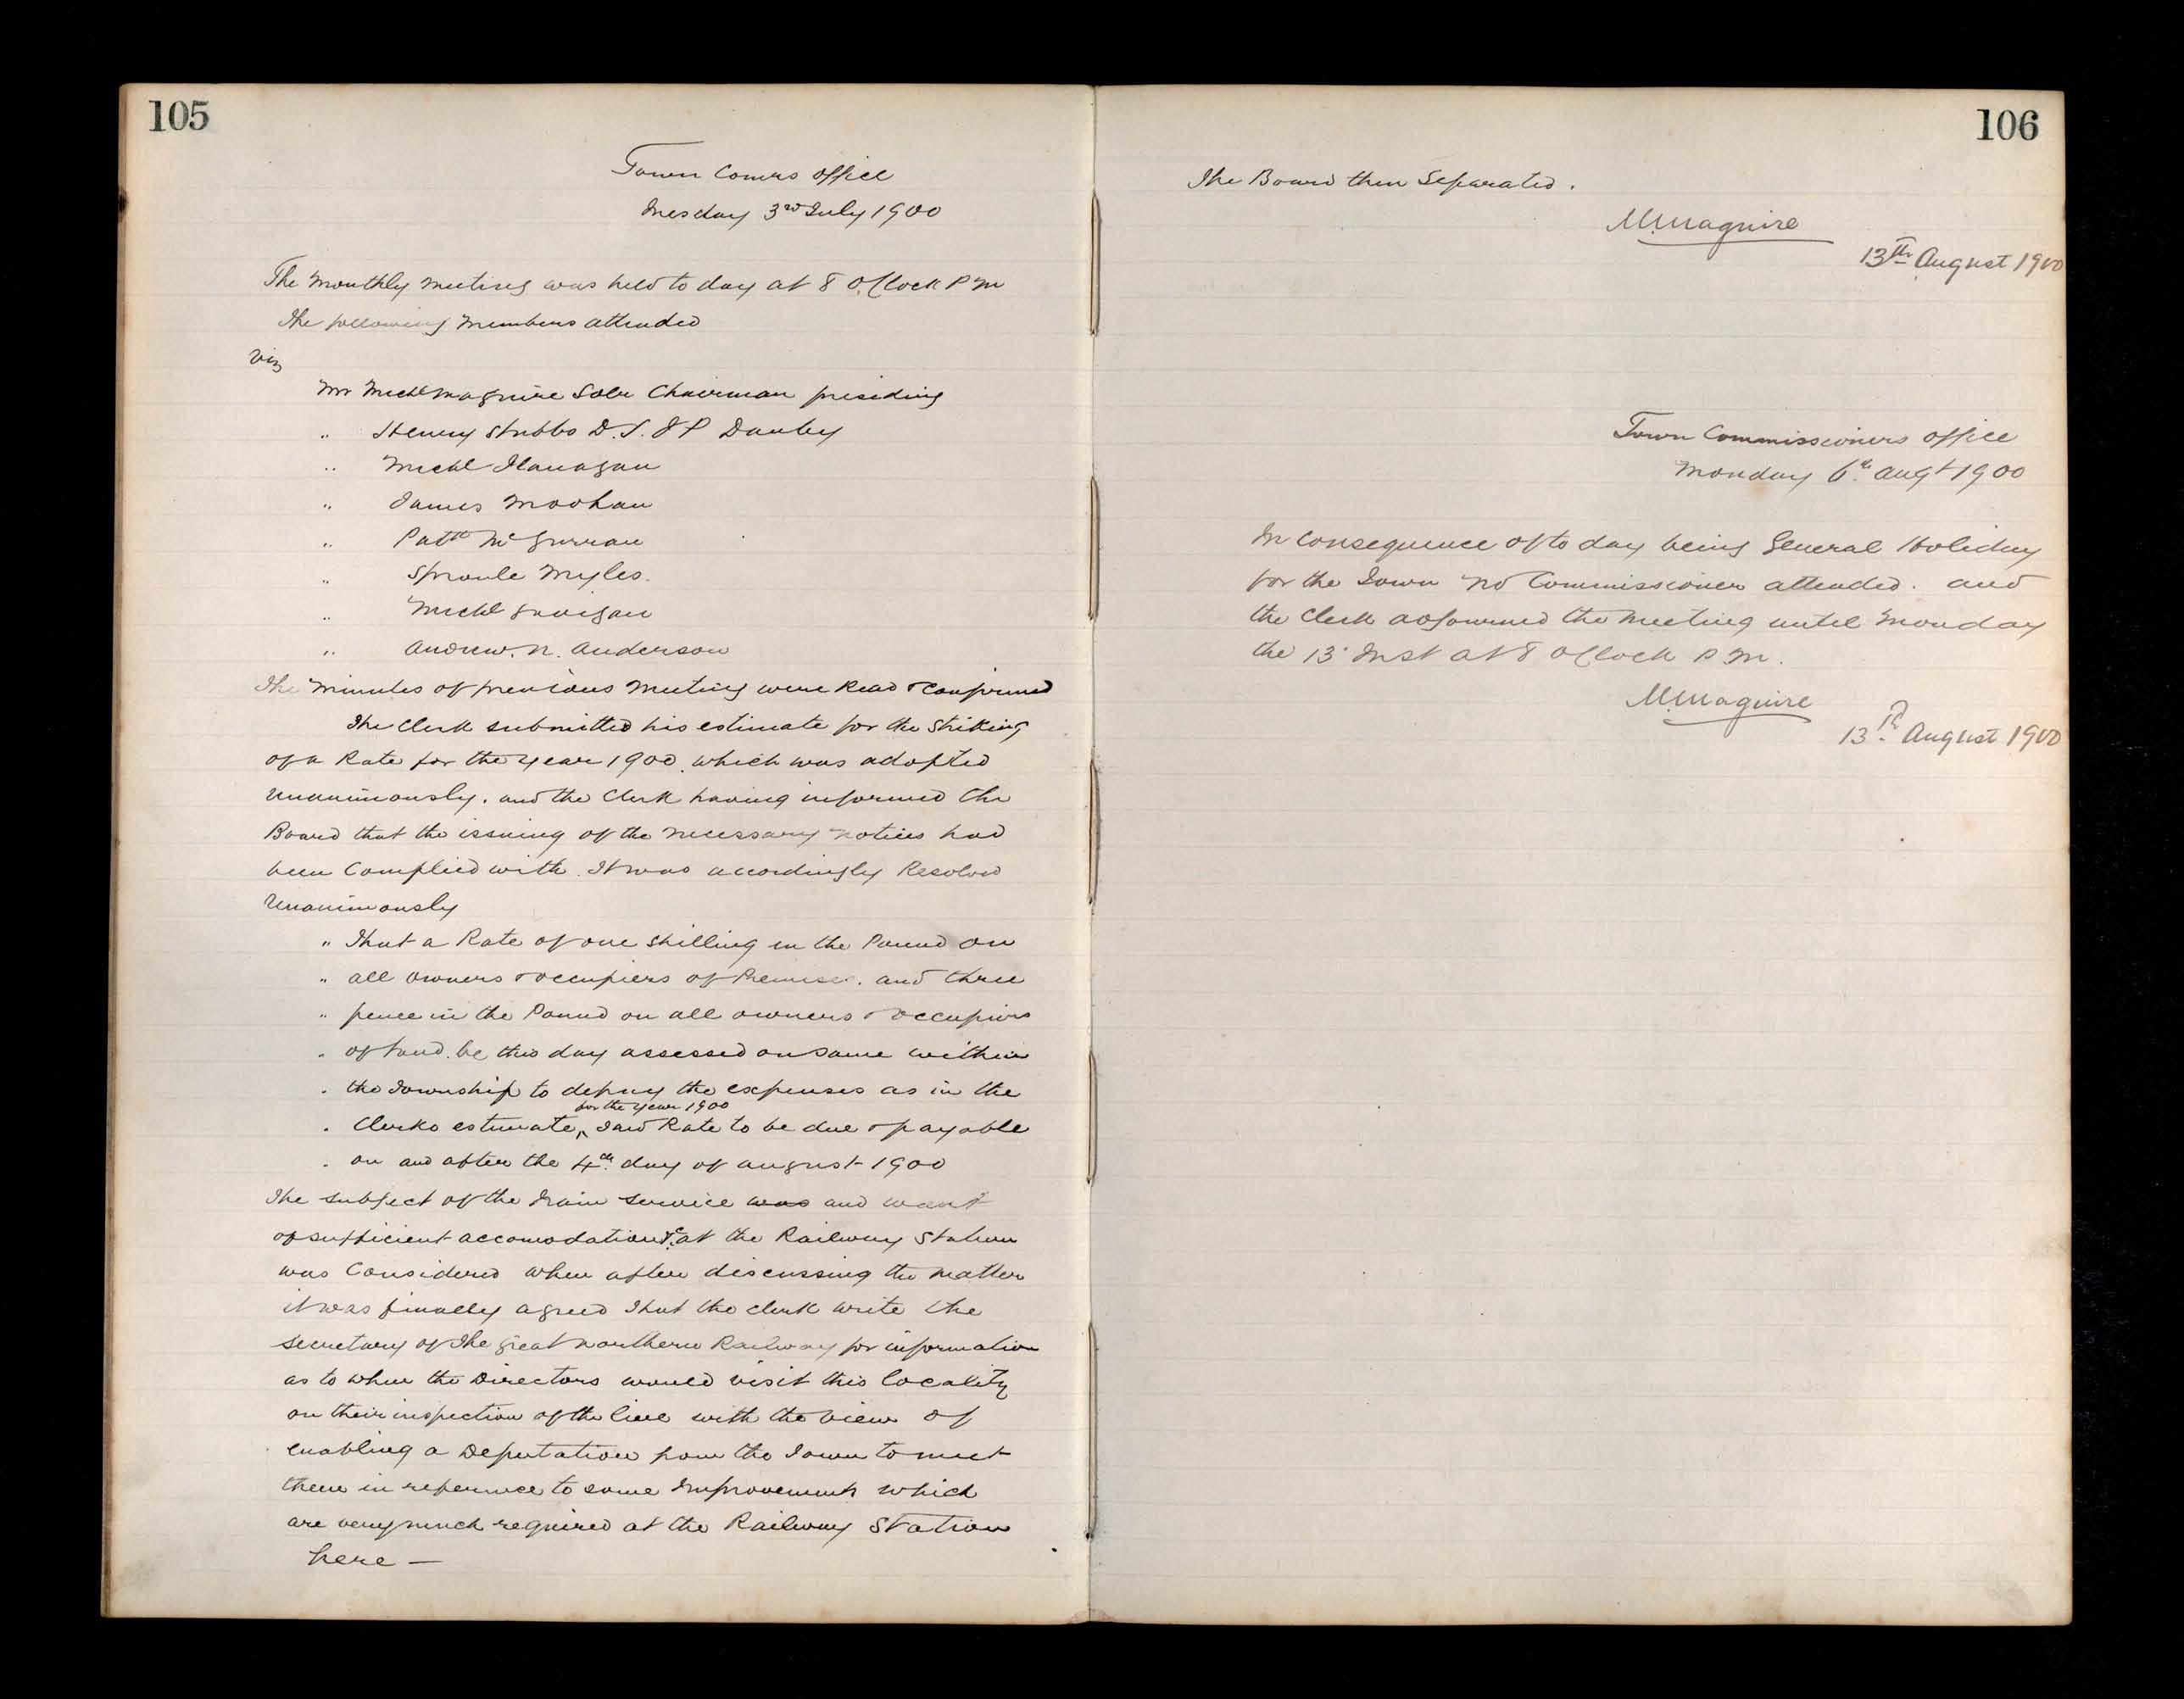 105
Town Comrs office
Tuesday 3rd July 1900
The Monthly Meeting was held to day at 8 O.Clock P m
The following Members attended
Viz
Mr Michl Maguire Solr Chairman presiding
" Henry Stubbs D.L. J P Danby
" Michl Flanagan
" James Moohan
" Patk McGurran
" Sproule Myles.
" Michl Gavigan
" Andrew. N. Anderson
The Minutes of previous Meeting were Read & Confirmed
The Clerk submitted his estimate for the Striking
of a Rate for the year 1900. which was adopted
Unanimously. and the Clerk having informed the
Board that the issuing of the necessary notices had
been Complied with. It was accordingly Resolved
Unanimously
" That a Rate of one shilling in the Pound on
" all owners & occupiers of Premises. and three
" pence in the Pound on all owners & occupiers
" of Land. be this day assessed on same within
" the Township to defray the expenses as in the
for the year 1900
" Clerks estimate, ^ Said Rate to be due & payable
" on and after the 4th day of august 1900
The subject of the train service was and want
of sufficient accomodation &c at the Railway Station
was Considered when after discussing the matter
it was finally agreed that the clerk write the
secretary of the great northern Railway for information
as to when the Directors would visit this locality
on their inspection of the line with the view of
enabling a Deputation from the Town to meet
them in reference to some Improvements which
are very much required at the Railway Station
here —
106
The Board then Separated.
M. Maguire
13th August 1900
Town Commissioners office
Monday 6th Augt 1900
In Consequence of to day being General Holiday
for the Town no Commissioner attended. and
the Clerk adjourned the Meeting until Monday
the 13 Inst at 8 OClock P M.
M. Maguire
13th August 1900